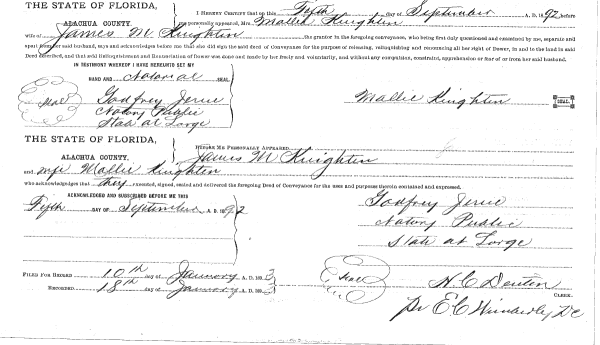 THE STATE OF FLORIDA,
ALACHUA COUNTY.
I HEREBY CERTIFY that on this Fifth day of September A. D. 1892, before
me personally appeared, Mrs. Mallie Knighten
wife of James M Knighten the grantor in the foregoing conveyance, who being first duly questioned and examined by me, separate and
apart from her said husband, says and acknowledges before me that she did sign the said deed of Conveyance for the purpose of releasing, relinquishing and renouncing all her right of Dower, in and to the land in said
Deed described, and that said Relinquishment and Renunciation of Dower was done and made by her freely and voluntarily, and without any compulsion, constraint, apprehension or fear of or from her said husband.
IN TESTIMONY WHEREOF I HAVE HEREUNTO SET MY
HAND AND Notarial SEAL
Seal
Godfrey
Notary Public
State at Large
Mallie Knighten SEAL.
THE STATE OF FLORIDA,
ALACHUA COUNTY,
BEFORE ME PERSONALLY APPEARED
James M Knighten
and wife Mallie Knighten
who acknowledges that they executed, signed, sealed and delivered the foregoing Deed of Conveyance for the uses and purposes therein contained and expressed.
ACKNOWLEDGED AND SUBSCRIBED BEFORE ME THIS
Fifth DAY OF September A. D. 1892
Godfrey
Notary Public
State at Large
FILED FOR RECORD 10th day of January A. D. 1893
RECORDED 18th day of January A. D. 1893
Seal
H. C. Denton
CLERK.
Pr E C Wimberly DC